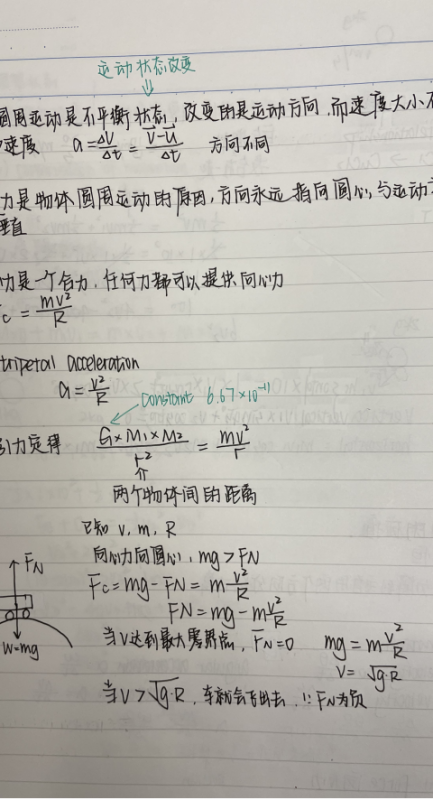 运动状态改变
圆周运动是不平衡状态，改变的是运动方向，而速度大小不
速度 a = ΔV/Δt = (V-U)/Δt 方向不同
力是物体圆周运动的原因，方向永远指向圆心，与运动方
垂直
力是一个合力，任何力都可以提供向心力
Fc = mv²/R
tripetal acceleration
a = v²/R
Constant 6.67×10⁻¹¹
引力定律 G×M1×M2/r² = mv²/r
两个物体间的距离
已知 v, m, R
向心力向圆心，mg > FN
Fc = mg - FN = m v²/R
FN = mg - m v²/R
FN
W=mg
当V达到最大临界点，FN=0 mg = m v²/R
V = √g·R
当V>√g·R，车就会飞出去，∵FN为负